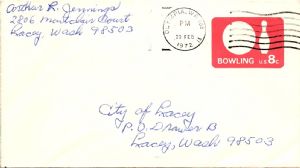 Arthur R. Jennings
2806 Montclair Court
Lacey, Wash 98503
OLYMPIA, WA
PM
29 FEB
1972
BOWLING U.S. 8c
City of Lacey
P.O. Drawer B
Lacey, Wash 98503